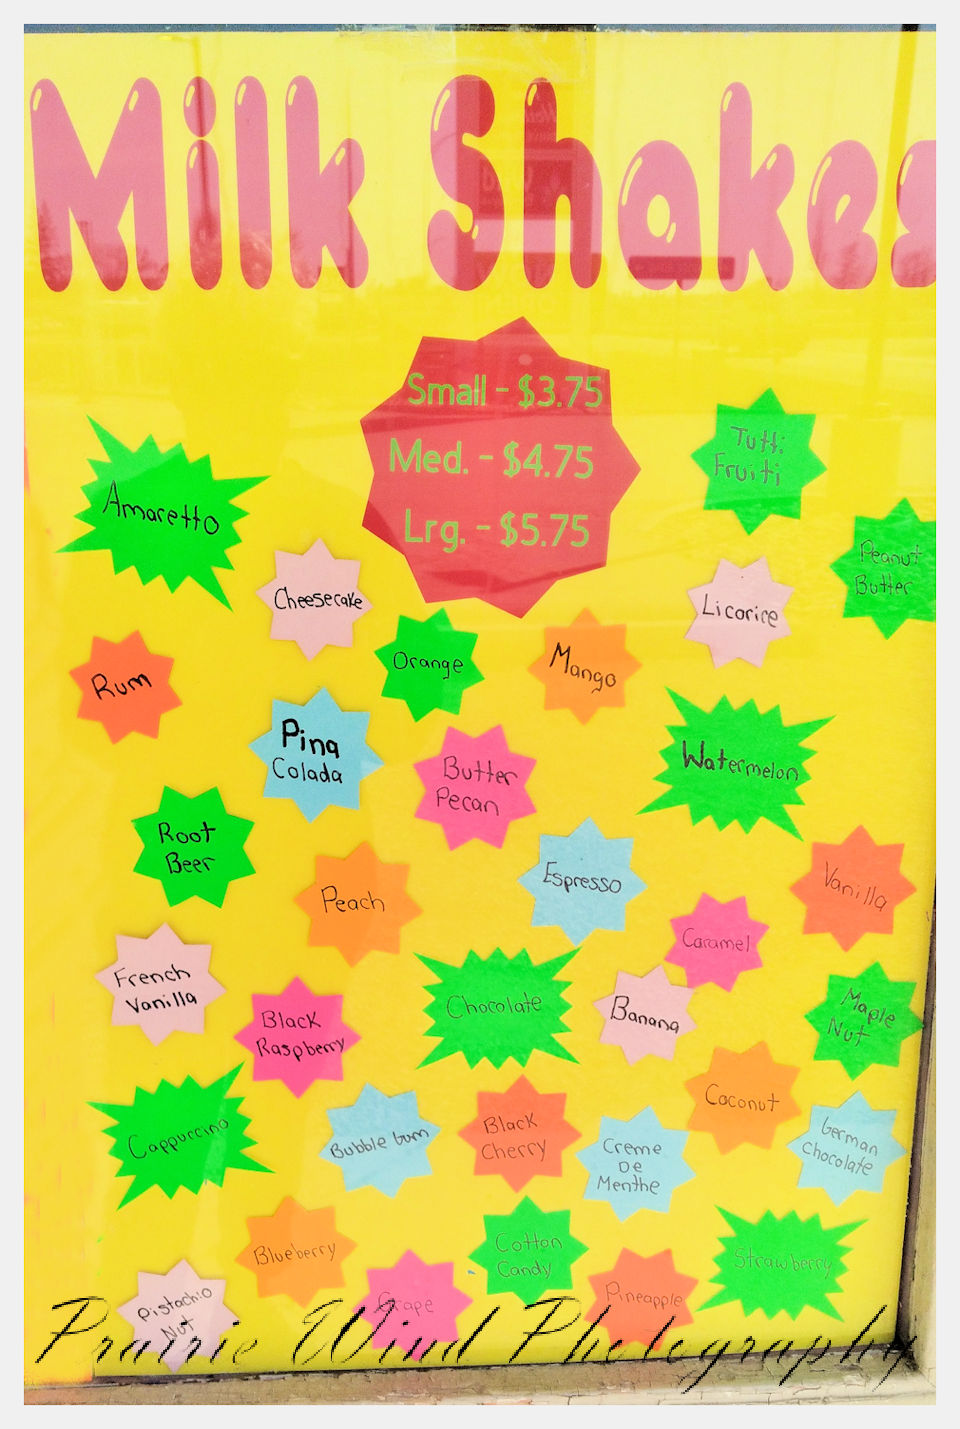 Milk Shakes
Small - $3.75
Med. - $4.75
Lrg. - $5.75
Tutti
Fruiti
Amaretto
Peanut
Butter
Cheesecake
Licorice
Orange
Mango
Rum
Pina
Colada
Butter
Pecan
Watermelon
Root
Beer
Peach
Espresso
Vanilla
Caramel
French
Vanilla
Black
Raspberry
Chocolate
Banana
Maple
Nut
Cappuccino
Bubble Gum
Black
Cherry
Creme
De
Menthe
Coconut
German
Chocolate
Blueberry
Cotton
Candy
Strawberry
Pistachio
Nut
Grape
Pineapple
Prairie Wind Photography